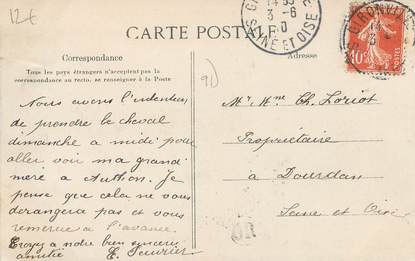 12€
CARTE POSTALE
Correspondance
Tous les pays étrangers n'acceptent pas la
correspondance au recto, se renseigner à la Poste
Nous avons l'intention
de prendre le cheval
dimanche a midi pour
aller voir ma grand
mère a Authon. Je
pense que cela ne vous
derangera pas et vous
remercie a l'avance.
Croyez a notre bien sincère
amitié E.
Adresse
91
Mr, Mme Ch. Loriot
Propriétaire
a Dourdan
Seine et Oise
SEINE ET OISE
10